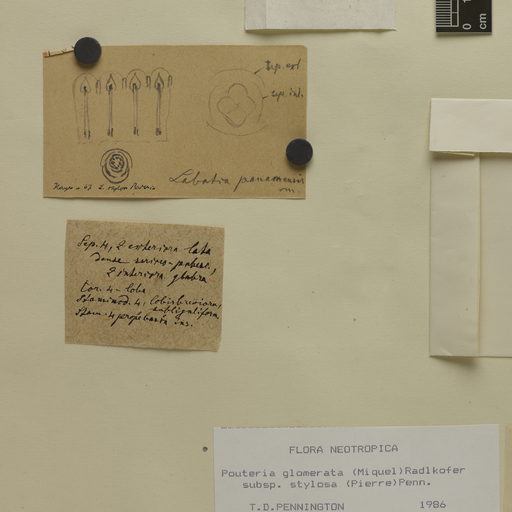 0 1
cm
Sep. ext
sep. int.
Labatia panamensis
Sep. 4, 2 exteriora lata
dense sericeo-pubesc,
2 interiora glabra
Cor. 4-loba
Staminod. 4, lobis breviora,
subliguliform
Stam. 4 prope basin ins.
FLORA NEOTROPICA
Pouteria glomerata (Miquel)Radlkofer
subsp. stylosa (Pierre)Penn.
T.D.PENNINGTON 1986